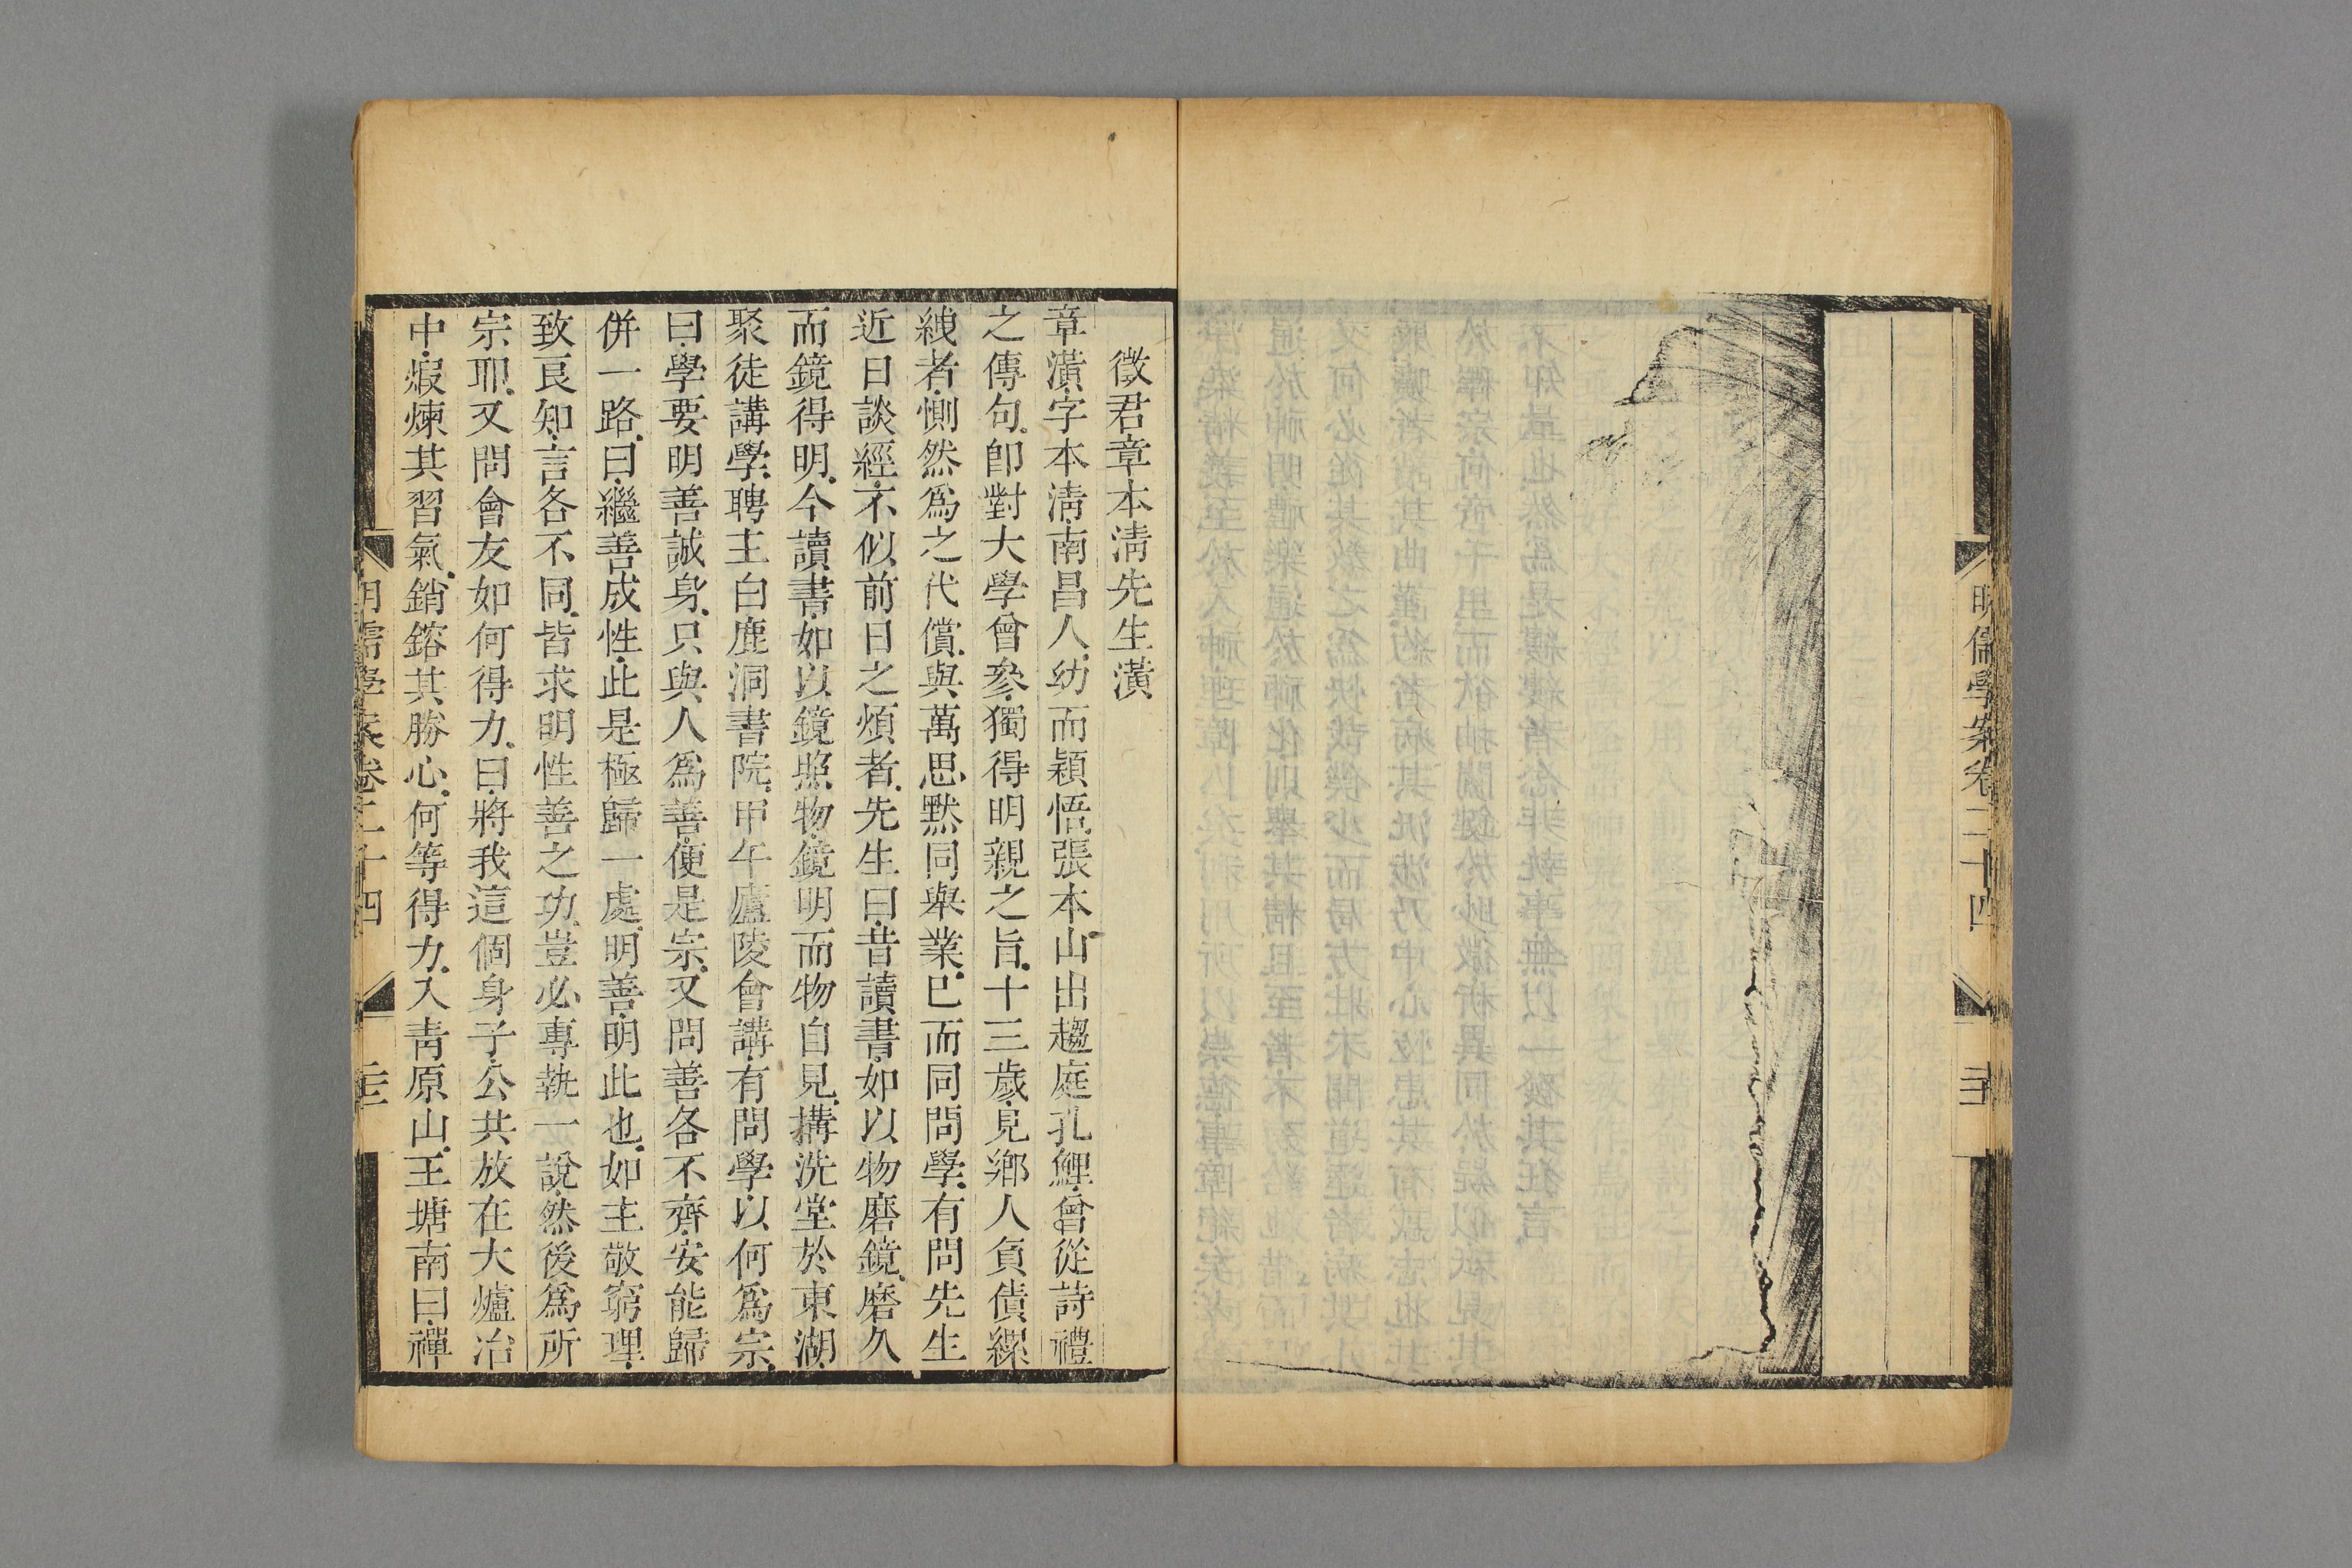 明儒學案卷二十四
徵君章本淸先生潢
章潢字本淸南昌人幼而穎悟張本山出趨庭孔鯉曾從詩禮
之傳句卽對大學曾參獨得明親之旨十三歲見鄉人負債縲
絏者惻然爲之代償與萬思默同舉業已而同問學有問先生
近日談經不似前日之煩者先生曰昔讀書如以物磨鏡磨久
而鏡得明今讀書如以鏡照物鏡明而物自見搆洗堂於東湖
聚徒講學聘主白鹿洞書院甲午廬陵會講有問學以何爲宗
曰學要明善誠身只與人爲善便是宗又問善各不齊安能歸
併一路曰繼善成性此是極歸一處明善明此也如主敬窮理
致良知言各不同皆求明性善之功豈必專執一說然後爲所
宗耶又問會友如何得力曰將我這個身子公共放在大爐冶
中煆煉其習氣銷鎔其勝心何等得力入靑原山王塘南曰禪
明儒學案卷二十四